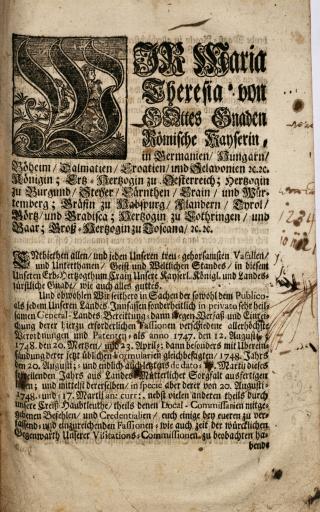 WIR Maria
Theresia von
GOttes Gnaden
Römische Kayserin,
in Germanien/ Hungarn/
Böheim/ Dalmatien/ Croatien/ und Sclavonien ꝛc.ꝛc.
Königin; Ertz-Hertzogin zu Oesterreich; Hertzogin
zu Burgund/ Steyer/ Cärnthen/ Crain/ und Wür-
temberg; Gräfin zu Habspurg/ Flandern/ Tyrol/
Görtz/ und Gradisca; Hertzogin zu Lothringen/ und
Baar; Groß-Hertzogin zu Toscana/ ꝛc.ꝛc.
Entbiethen allen/ und jeden Unseren treu-gehorsamsten Vasallen/
und Unterthanen/ Geist- und Weltlichen Standes/ in diesem
Unseren Erb-Hertzogthum Crain Unsere Kayserl. Königl. und Landes-
fürstliche Gnade/ wie auch alles guttes.
Und obwohlen Wir seithero in Sachen der sowohl dem Publico-
als jedem Unseren Landes-Innsassen sonderheitlich in privato sehr heil-
samen General-Landes-Bereittung; dann wegen Verfaß- und Einrei-
chung derer hierzu erforderlichen Fassionen verschiedene allerhöchste
Verordnungen und Patenten/ als anno 1747. den 12. Augusti/
1748. den 20. Mertzen/ und 23. April; dann besonders mit Ubersen-
dung derer jetzt üblichen Formularien gleichbesagten/ 1748. Jahrs
den 20. Augusti;- und endlich auch letztens de dato 17. Martii dieses
lauffenden Jahrs aus Landes-Mütterlicher Sorgfalt ausfertigen
lassen; und mittelst dererselben/ in specie aber derer von 20. Augusti-
1748. und 17. Martii an: curr:. nebst vielen anderen theils durch
unsere Creiß-Haubtleuthe/ theils denen Local-Commissarien mitge-
gebenen Befehlen/ und Credentialien/ euch einige bey eueren zu ver-
fassend- und einzureichenden Fassionen- wie auch zeit der würcklichen
Gegenwarth Unserer Visitations-Commissionen zu beobachten ha-
bende